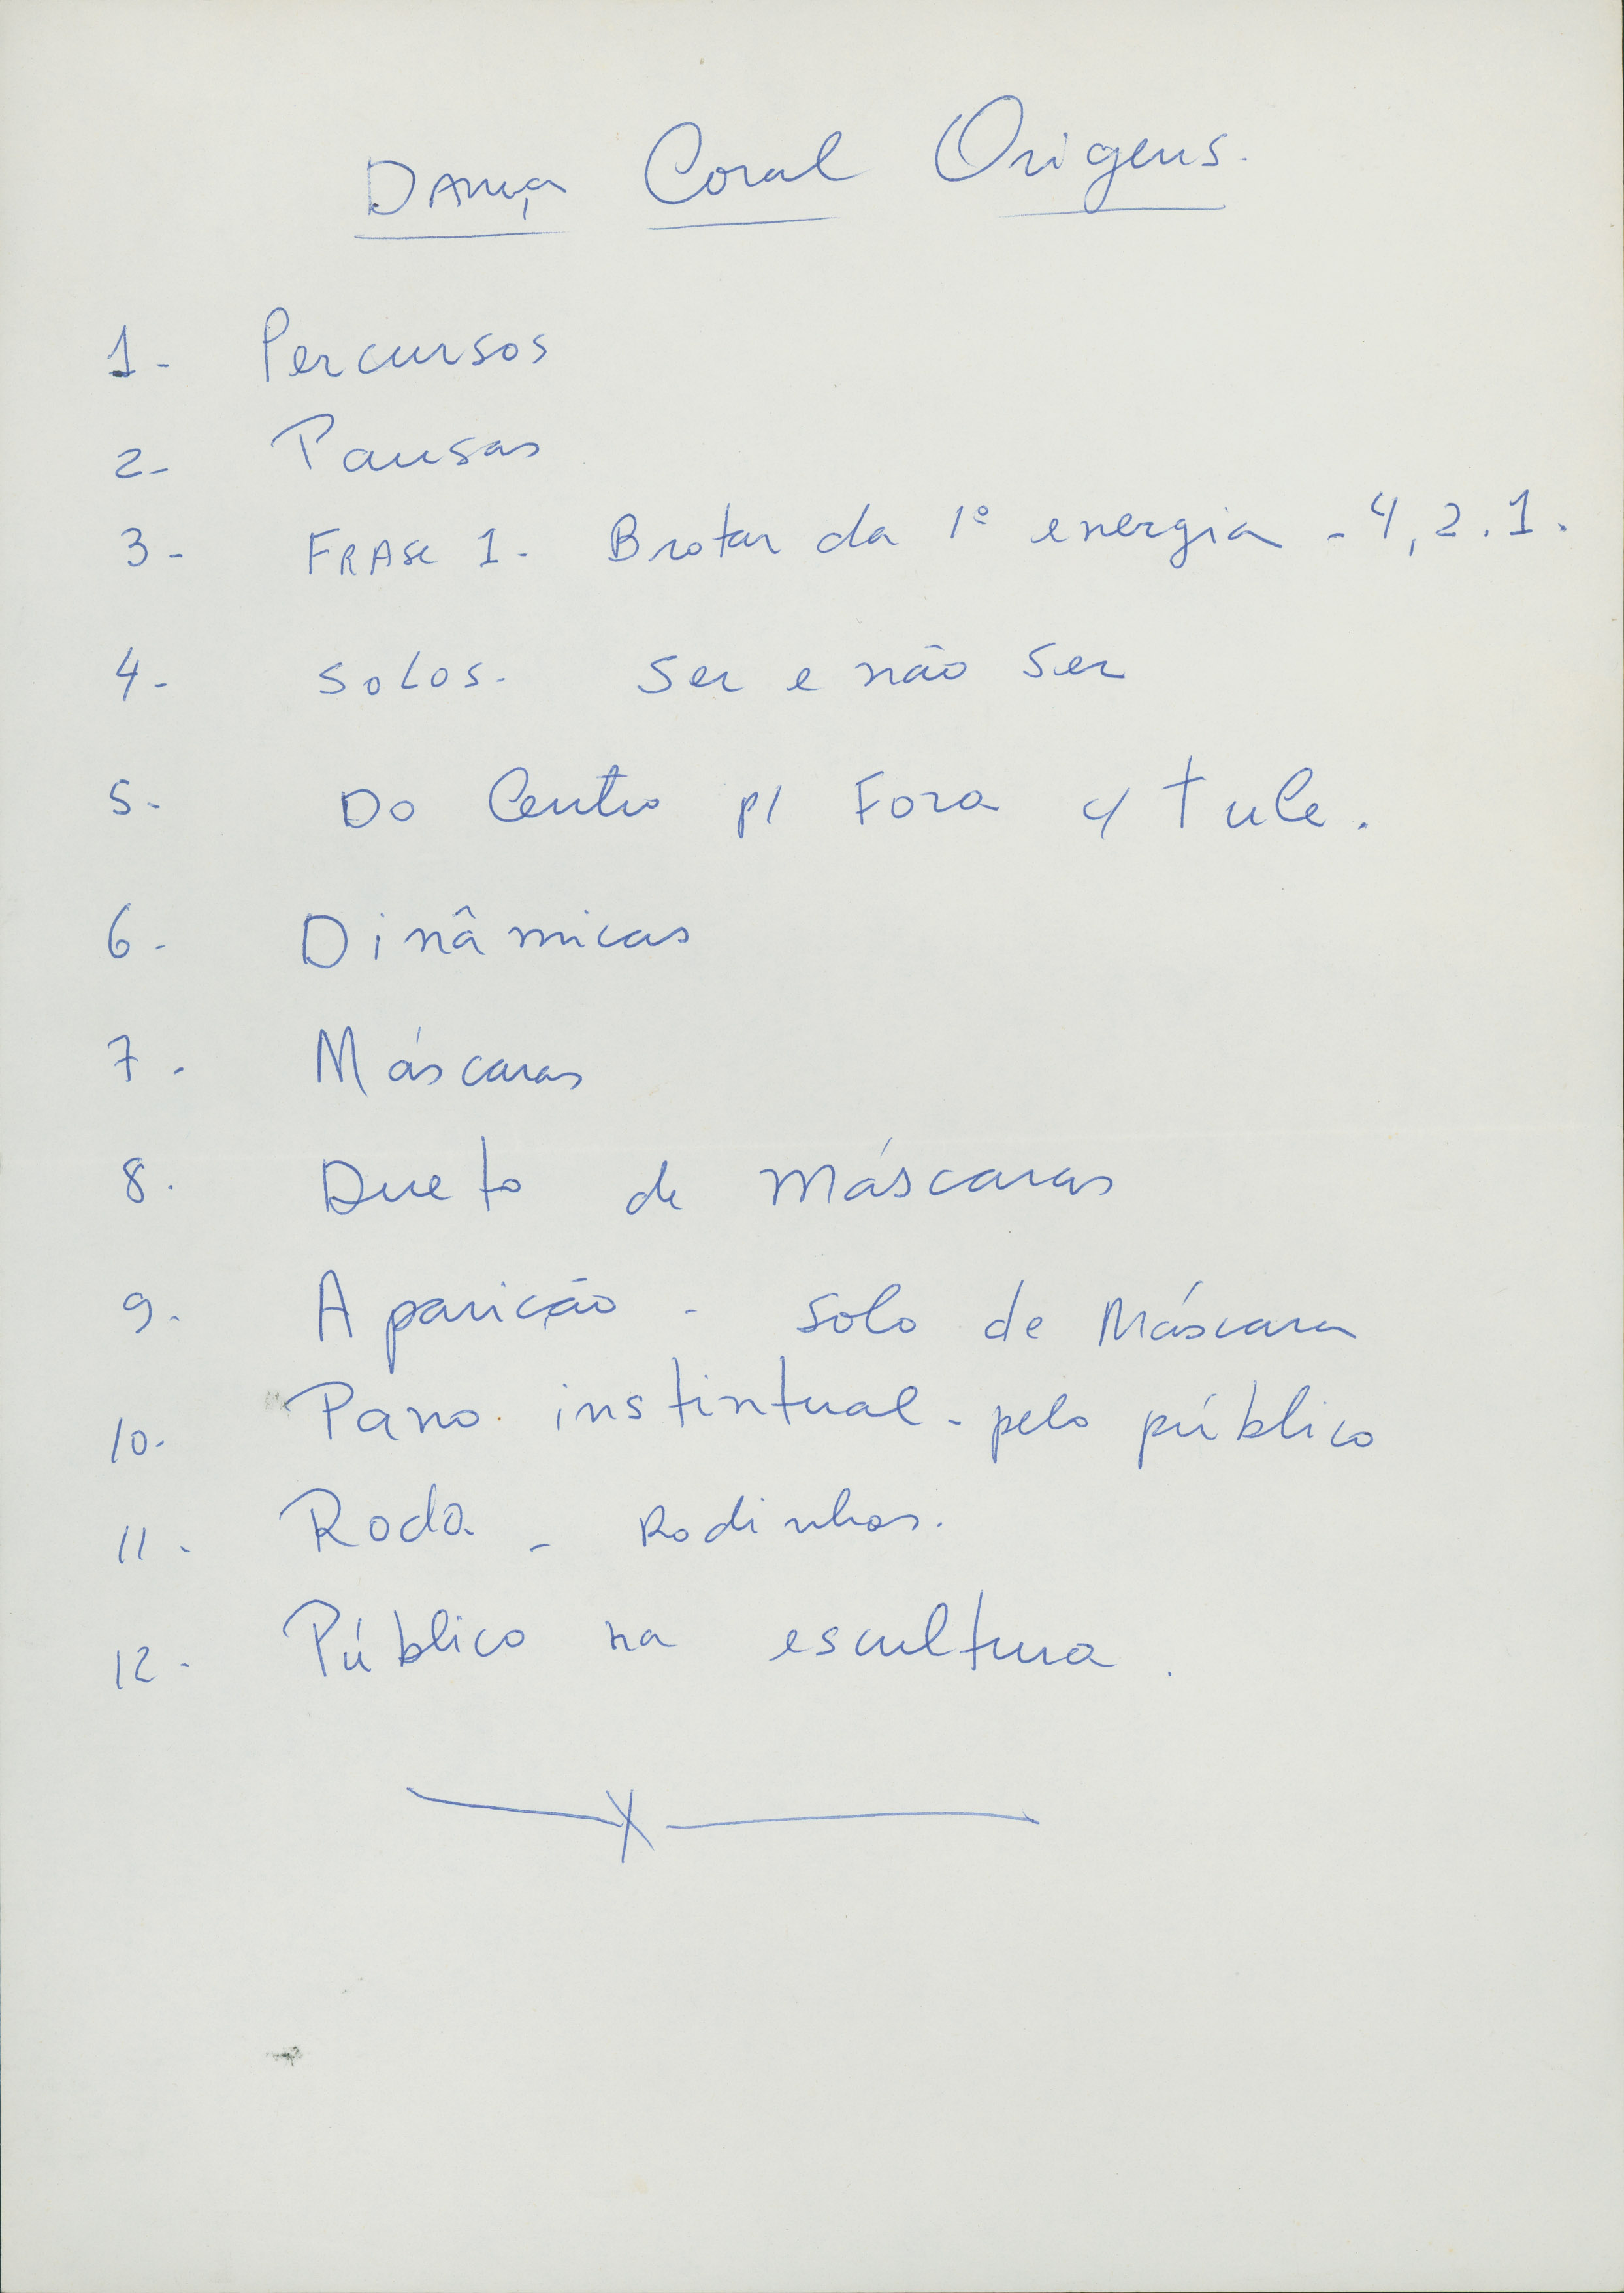 Dança Coral Origens.
1- Percursos
2- Pausas
3- FRASE 1- Brotar da 1º energia - 4, 2. 1.
4- SOLOS. Ser e não ser
5- Do Centro p/ Fora c/ tule.
6- Dinâmicas
7. Máscaras
8. Dueto de máscaras
9. Aparição - solo de Máscara
10. Pano instintual - pelo público
11. Roda - Rodinhas.
12- Público na escultura.
X